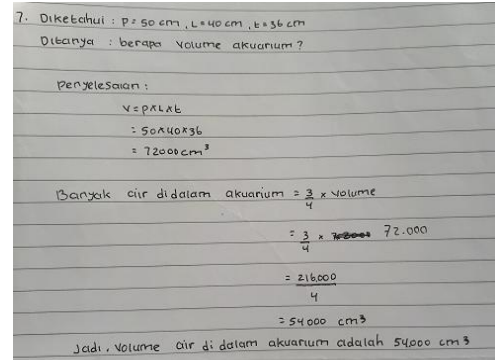 7. Diketahui : P = 50 cm, L = 40 cm, t = 36 cm
Ditanya : berapa volume akuarium?
Penyelesaian :
V = PxLxt
= 50x40x36
= 72000 cm³
Banyak air didalam akuarium = 3/4 x volume
= 3/4 x 72.000
= 216.000/4
= 54000 cm³
Jadi, volume air di dalam akuarium adalah 54.000 cm³